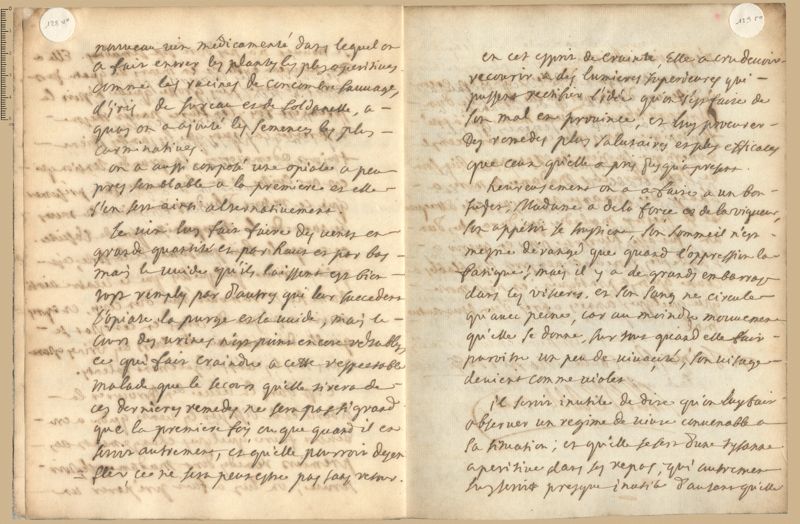 nouveau vin medicamenté dans lequel on
a fait entrer les plantes les plus aperitives
comme les racines de concombre sauvages
d'iris de sureau et de soldanelle, a-
quoy on a ajouté les semences les plus-
carminatives.
on a aussi composé une opiate a peu
pres semblable a la premiere et elle-
s'en sert ainsi alternativement.
Le vin luy fait faire des vents en-
grande quantité et par haut et par bas-
mais le vuide qu'ils laissent est bien-
tost remply par d'autres qui leur succedent
l'opiate la purge et la vuide, mais le-
cours des urines n'est point encore retablis,
ce qui fait craindre a cette respectable
malade que le secours qu'elle tirera de-
ces derniers remedes ne sera pas si grand
que la premiere fois, ou que quand il en
seroit autrement, et qu'elle pourroit desen
fler, ce ne sera peut estre pas sans retour.
en cet esprit de crainte, Elle a cru devoir
recourir a des lumieres superieures qui-
pussent rectifier l'idée qu'on s'est faite de
son mal en province, et luy procurer-
des remedes plus salutaires et plus efficaces
que ceux qu'elle a pris jusqu'a present.
heureusement on a a faire a un bon-
sujet. Madame a de la force et de la vigueur,
son appetit se soustient, son sommeil n'est-
mesme derangé que quand l'oppression la
fatigue, mais il y a de grands embarras
dans les visceres, et son sang ne circule
qu'avec peine, car au moindre mouvement
qu'elle se donne, sur tout quand elle fait-
paroitre un peu de vivacité, son visage-
devient comme violet
il seroit inutile de dire qu'on luy fait-
observer un regime de vivre convenable a
sa situation, et qu'elle se sert d'une tysanne
aperitive dans ses repas, qui autrement
luy seroit presque inutile d'autant qu'elle